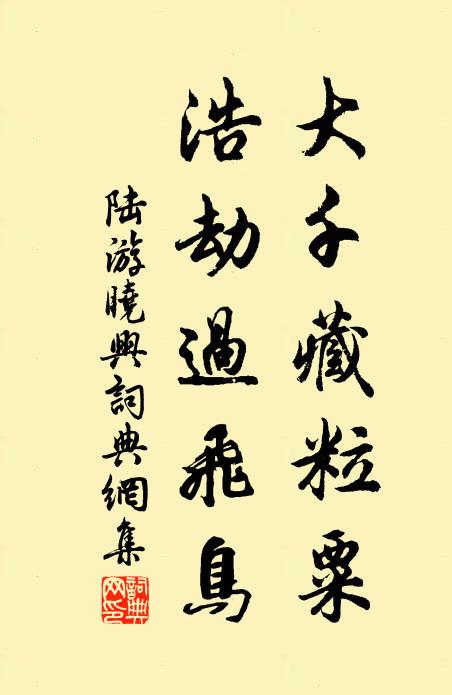 大千藏粒粟
浩劫過飛鳥
陸游曉興詞典網集
詞典網印